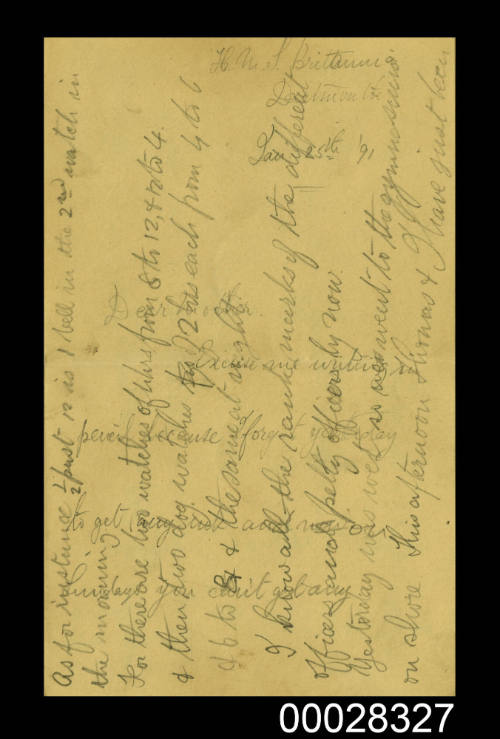 H.M.S. Britannia
Dartmouth
Jan 25th '91
Dear
Excuse me writing in
pencil because I forgot yesterday
to get any ink and now on
Sundays you can't get any
As for instance ½ past is 1 bell in the 2nd watch in
the morning.
For there are two watches of 4 hrs from 8 to 12, & 12 to 4.
& then two dog watches of 2 hrs each from 4 to 6
& 6 to 8 & the same at night
I know all the rank marks of the different
officers and petty officers by now.
Yesterday was wet so we went to the gymnasium
on shore This afternoon Thomas & I have just been
00028327